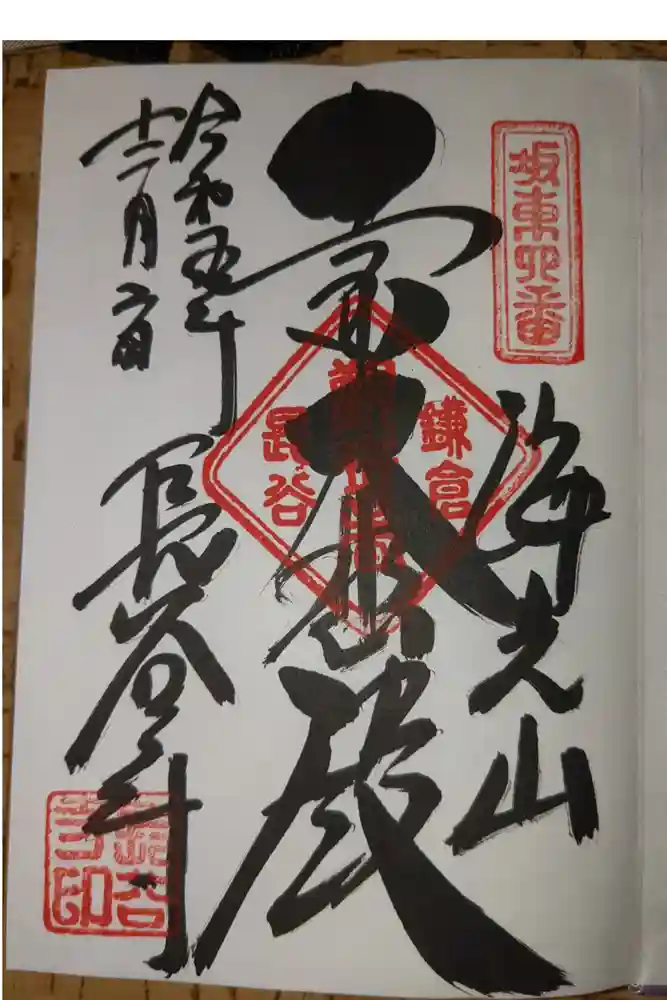 坂東四番
海光山
大悲殿
鎌倉
長谷
令和五年
十二月
長谷寺
長谷寺印